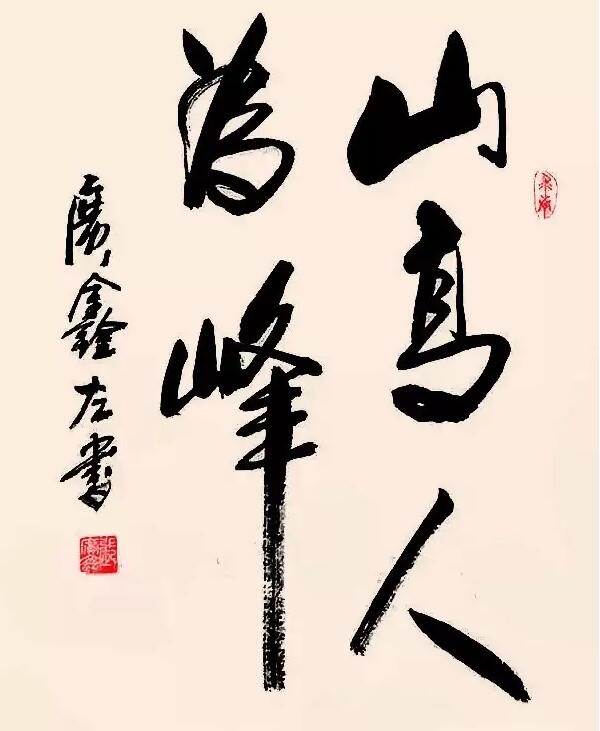 山高人
為峰
廣鑫左書